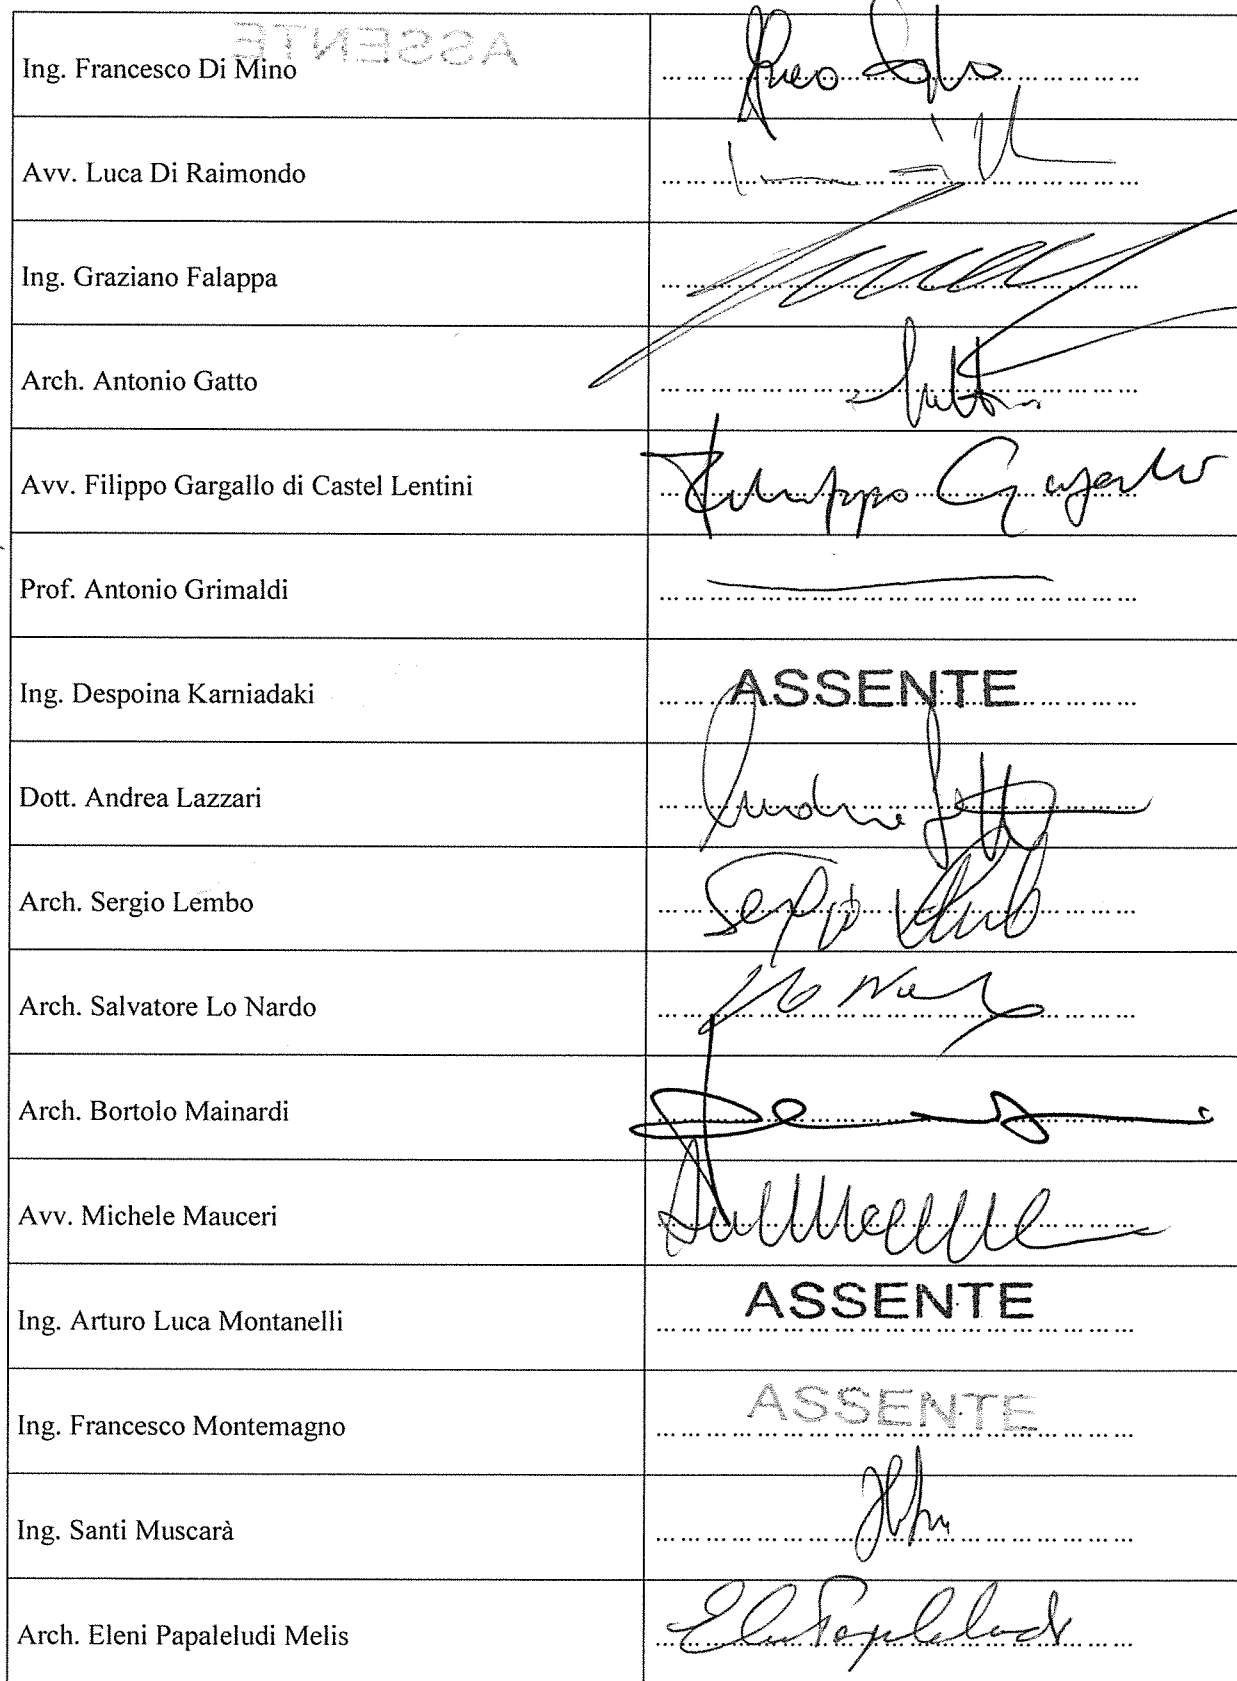 ASSENTE
Ing. Francesco Di Mino
Avv. Luca Di Raimondo
Ing. Graziano Falappa
Arch. Antonio Gatto
Avv. Filippo Gargallo di Castel Lentini Filippo Gargallo
Prof. Antonio Grimaldi
Ing. Despoina Karniadaki ASSENTE
Dott. Andrea Lazzari Andrea
Arch. Sergio Lembo Sergio Lembo
Arch. Salvatore Lo Nardo Lo Nardo
Arch. Bortolo Mainardi
Avv. Michele Mauceri
Ing. Arturo Luca Montanelli ASSENTE
Ing. Francesco Montemagno ASSENTE
Ing. Santi Muscarà
Arch. Eleni Papaleludi Melis Eleni Papaleludi